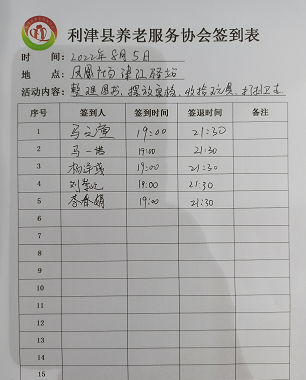 利津县养老服务协会签到表
时 间： 2022年8月5日
地 点： 凤凰社区津江驿站
活动内容： 整理图书、摆放桌椅、收拾玩具、打扫卫生
序号 签到人 签到时间 签退时间 备注
1 马 19:00 21:30
2 马一 19:00 21:30
3 杨 19:00 21:30
4 刘 19:00 21:30
5 李春娟 19:00 21:30
6
7
8
9
10
11
12
13
14
15